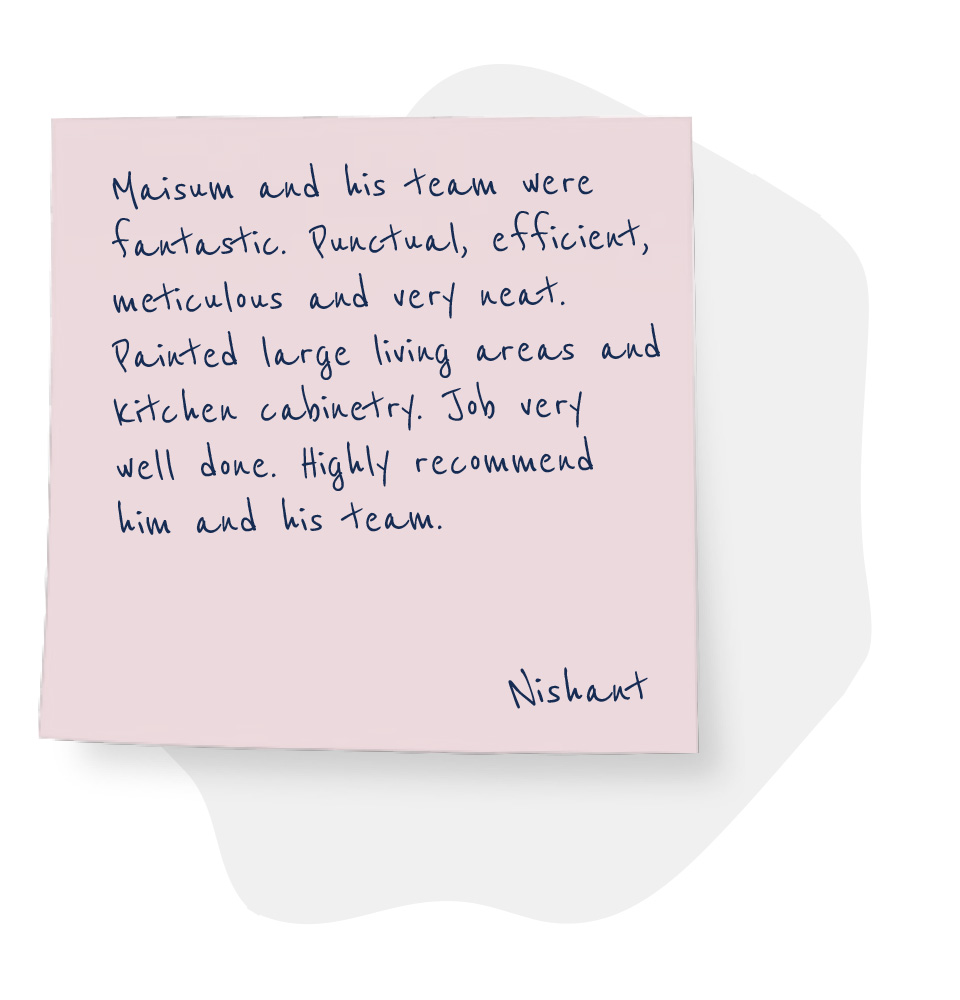 Maisum and his team were
fantastic. Punctual, efficient,
meticulous and very neat.
Painted large living areas and
kitchen cabinetry. Job very
well done. Highly recommend
him and his team.
Nishant